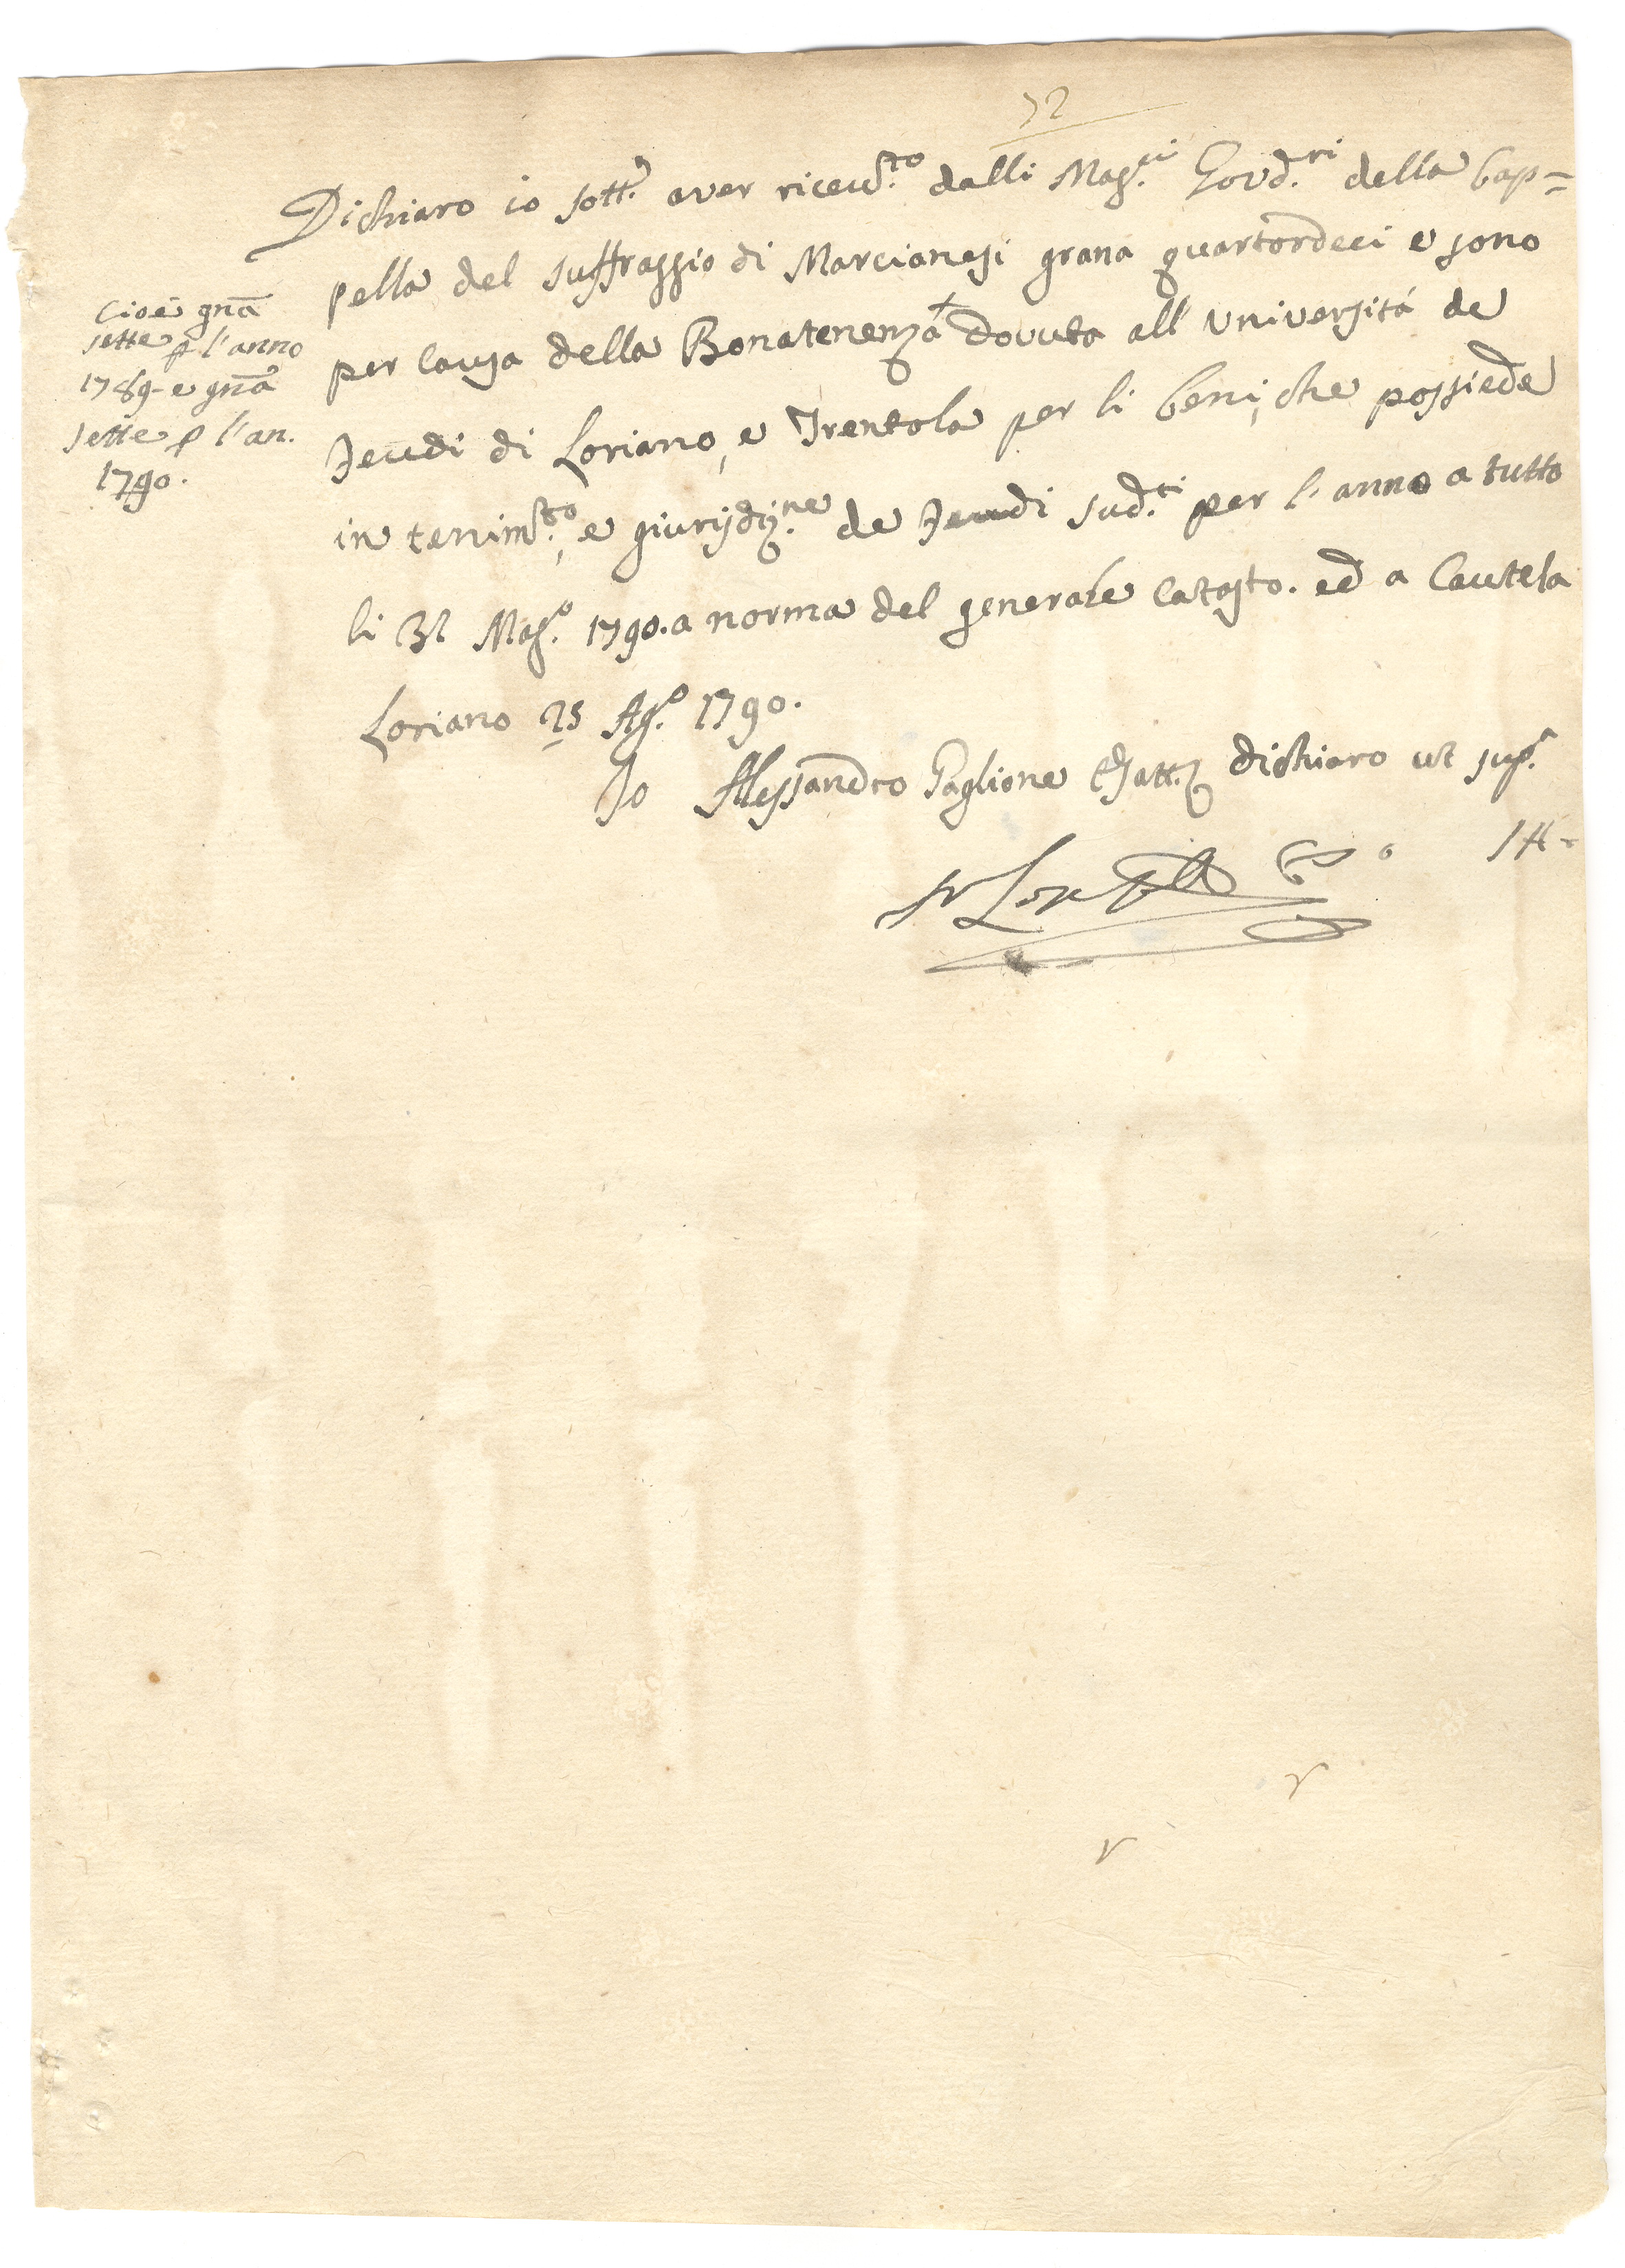 72
Dichiaro io sott.º aver ricevu.to dalli Mag.ci Gov.ri della Cap=
pella del suffraggio di Marcianesi grana quartordeci e sono
per causa della Bonatenenza + dovuta all'Università de
Feudi di Loriano, e Trentola per li beni, che possiede
in tenim.to, e giurisdiz.ne de Feudi sud.ti per l'anno a tutto
li 31 Mag.º 1790. a norma del generale catasto. ed a cautela
Loriano 25 Ag.º 1790.
Io Alessandro Paglione Esatt.e dichiaro ut sup.a
14
Cioè gnā
sette p l'anno
1789- e gnā
sette p l'an.
1790.